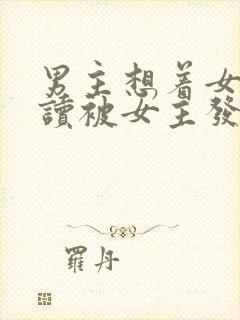 男主想着女
讀被女主發
羅丹